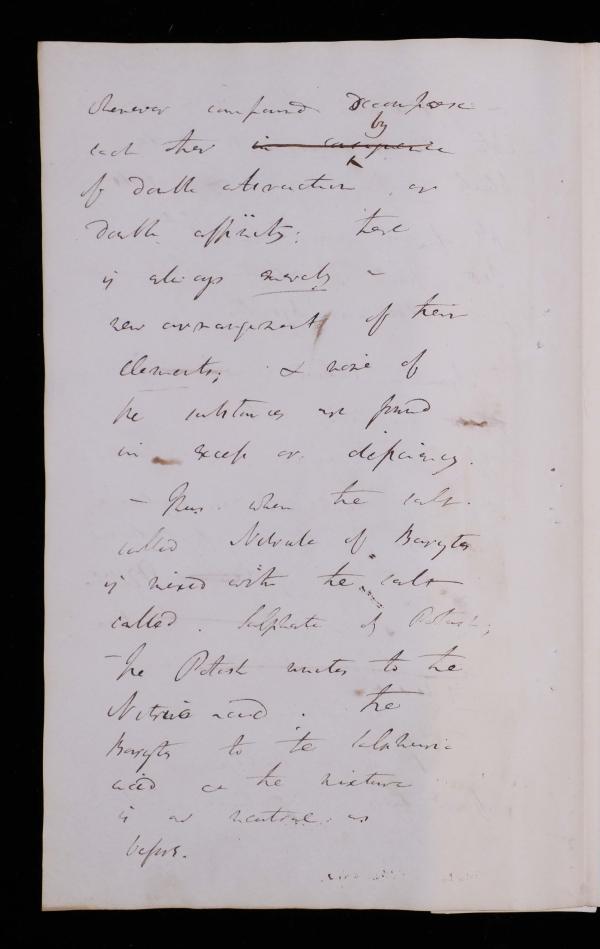 whenever compound Decompose
each other in consequence by
of double attraction or
double affinity; there
is always merely a
new arrangement of their
elements; & none of
the substances are found
in excess or deficiency.
— Thus when the salt
called Nitrate of Barytes
is mixed with the salt
called Sulphate of Potash;
— The Potash unites to the
Nitric acid. the
Barytes to the Sulphuric
acid & the mixture
is as neutral as
before.